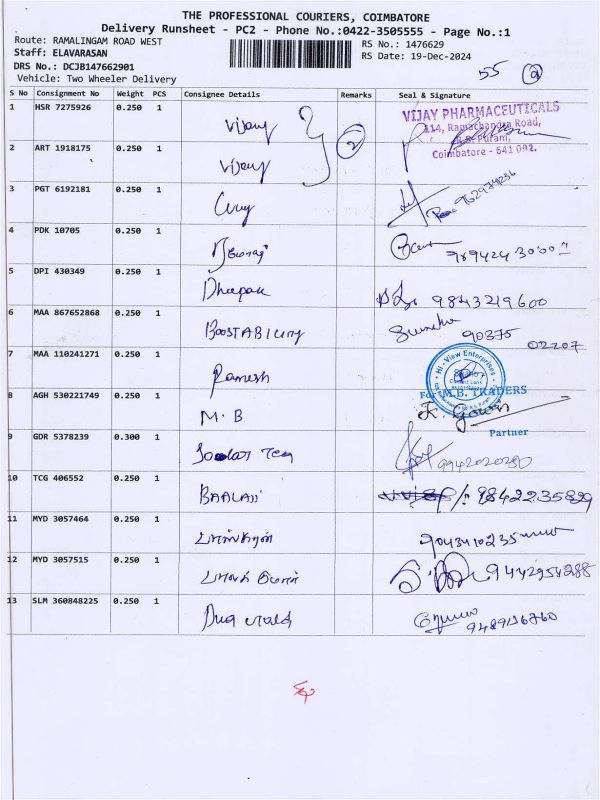 THE PROFESSIONAL COURIERS, COIMBATORE
Delivery Runsheet - PC2 - Phone No.:0422-3505555 - Page No.:1
Route: RAMALINGAM ROAD WEST RS No.: 1476629
Staff: ELAVARASAN RS Date: 19-Dec-2024
DRS No.: DCJB147662901 55 2
Vehicle: Two Wheeler Delivery
S No Consignment No Weight PCS Consignee Details Remarks Seal & Signature
1 HSR 7275926 0.250 1 Vijay 2 VIJAY PHARMACEUTICALS
114, Ramachandra Road,
R.S. Puram,
Coimbatore - 641 002.
2 ART 1918175 0.250 1 Vijay
3 PGT 6192181 0.250 1
4 PDK 10705 0.250 1
5 DPI 430349 0.250 1 Dheepak 9843219600
6 MAA 867652868 0.250 1 BOOSTABILITY 90375
02207
7 MAA 110241271 0.250 1 Ramesh Hi-View Enterprises
8 AGH 530221749 0.250 1 M.B For M.B. TRADERS
Partner
9 GDR 5378239 0.300 1 9942020280
10 TCG 406552 0.250 1 BAALAJI 9842235829
11 MYD 3057464 0.250 1 9043410235
12 MYD 3057515 0.250 1 9442954288
13 SLM 360848225 0.250 1